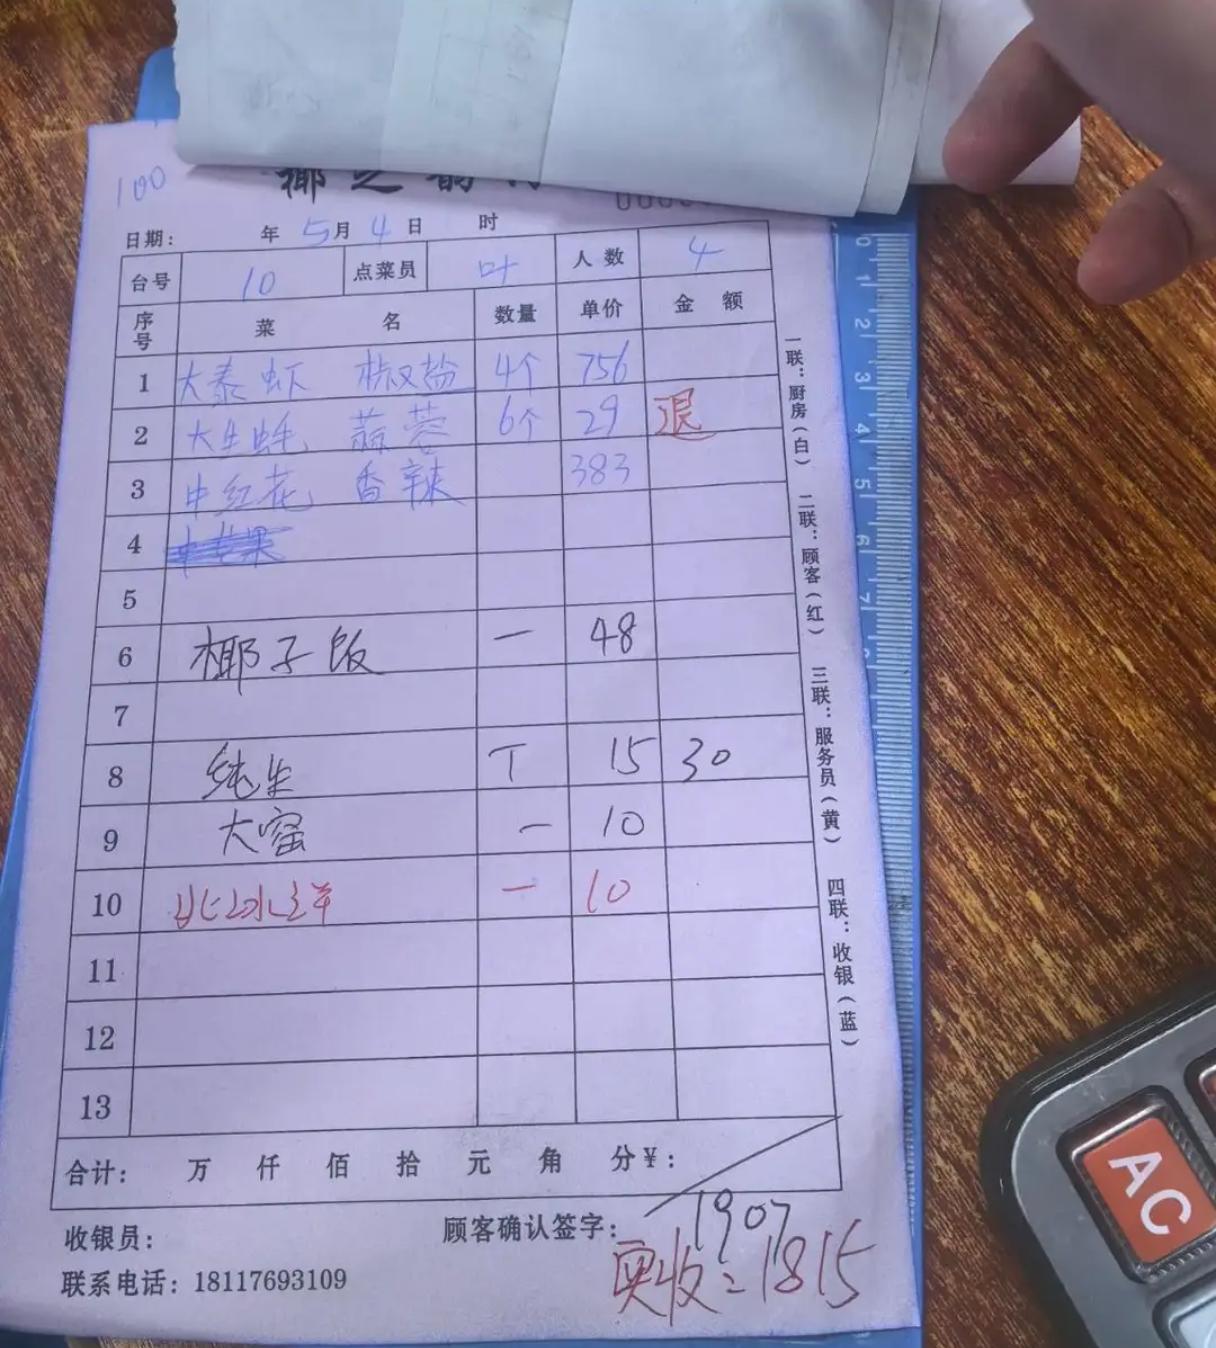 100
椰之韵
日期： 年 5月 4日 时
台号 10 点菜员 叶 人数 4
序号 菜 名 数量 单价 金 额
1 大泰虾 椒盐 4个 756
2 大生蚝 蒜蓉 6个 29 退
3 中红花 香辣 383
4
5
6 椰子饭 一 48
7
8 纯生 T 15 30
9 大窑 一 10
10 北冰洋 一 10
11
12
13
合计： 万 仟 佰 拾 元 角 分￥：
1907
收银员： 顾客确认签字：
实收：1815
联系电话：18117693109
一联：厨房（白） 二联：顾客（红） 三联：服务员（黄） 四联：收银（蓝）
0 1 2 3 4 5 6 7
AC